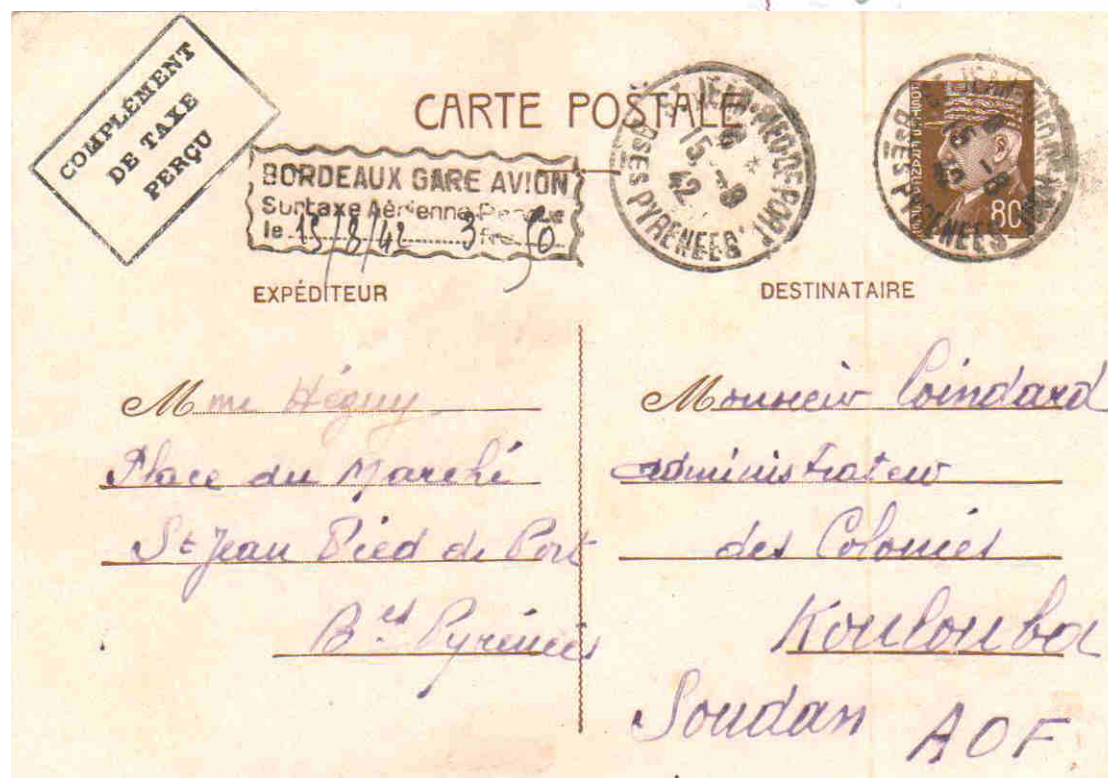 COMPLÉMENT
DE TAXE
PERÇU
CARTE POSTALE
BORDEAUX GARE AVION
Surtaxe Aérienne Perçue
le 15/8/42 3 frs 50
ST JEAN-PIED-DE-PORT
15-8
42
BSES PYRENEES
ST JEAN-PIED-DE-PORT
15-8
42
BSES PYRENEES
80
EXPÉDITEUR
Mme Héguy
Place du Marché
St Jean Pied de Port
Bses Pyrénées
DESTINATAIRE
Monsieur Coindard
administrateur
des Colonies
Koulouba
Soudan AOF